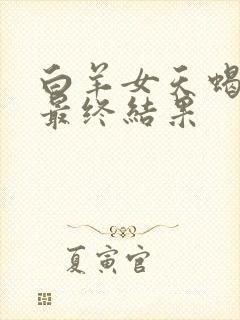 白羊女天蝎
最终结果
夏寅官